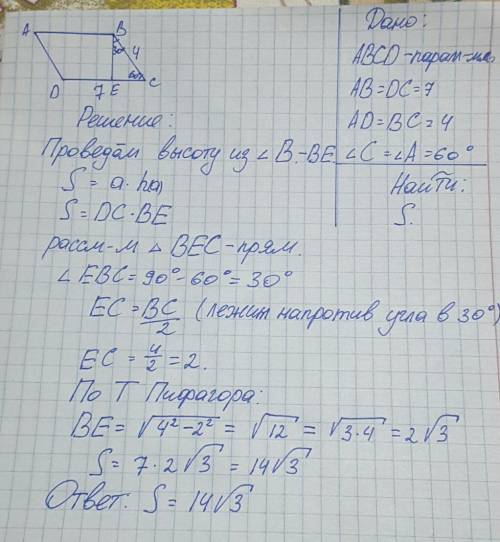 A B
30° 4
60°
D 7 E C
Дано:
ABCD-парал-мм
AB=DC=7
AD=BC=4
∠C=∠A=60°
Найти:
S.
Решение:
Проведём высоту из ∠B-BE
S=a·h(a)
S=DC·BE
рассм-м △ BEC-прям.
∠EBC=90°-60°=30°
EC=BC/2 (лежит напротив угла в 30°)
EC=4/2=2.
По Т Пифагора:
BE=√4²-2²=√12=√3·4=2√3
S=7·2√3=14√3
Ответ: S=14√3